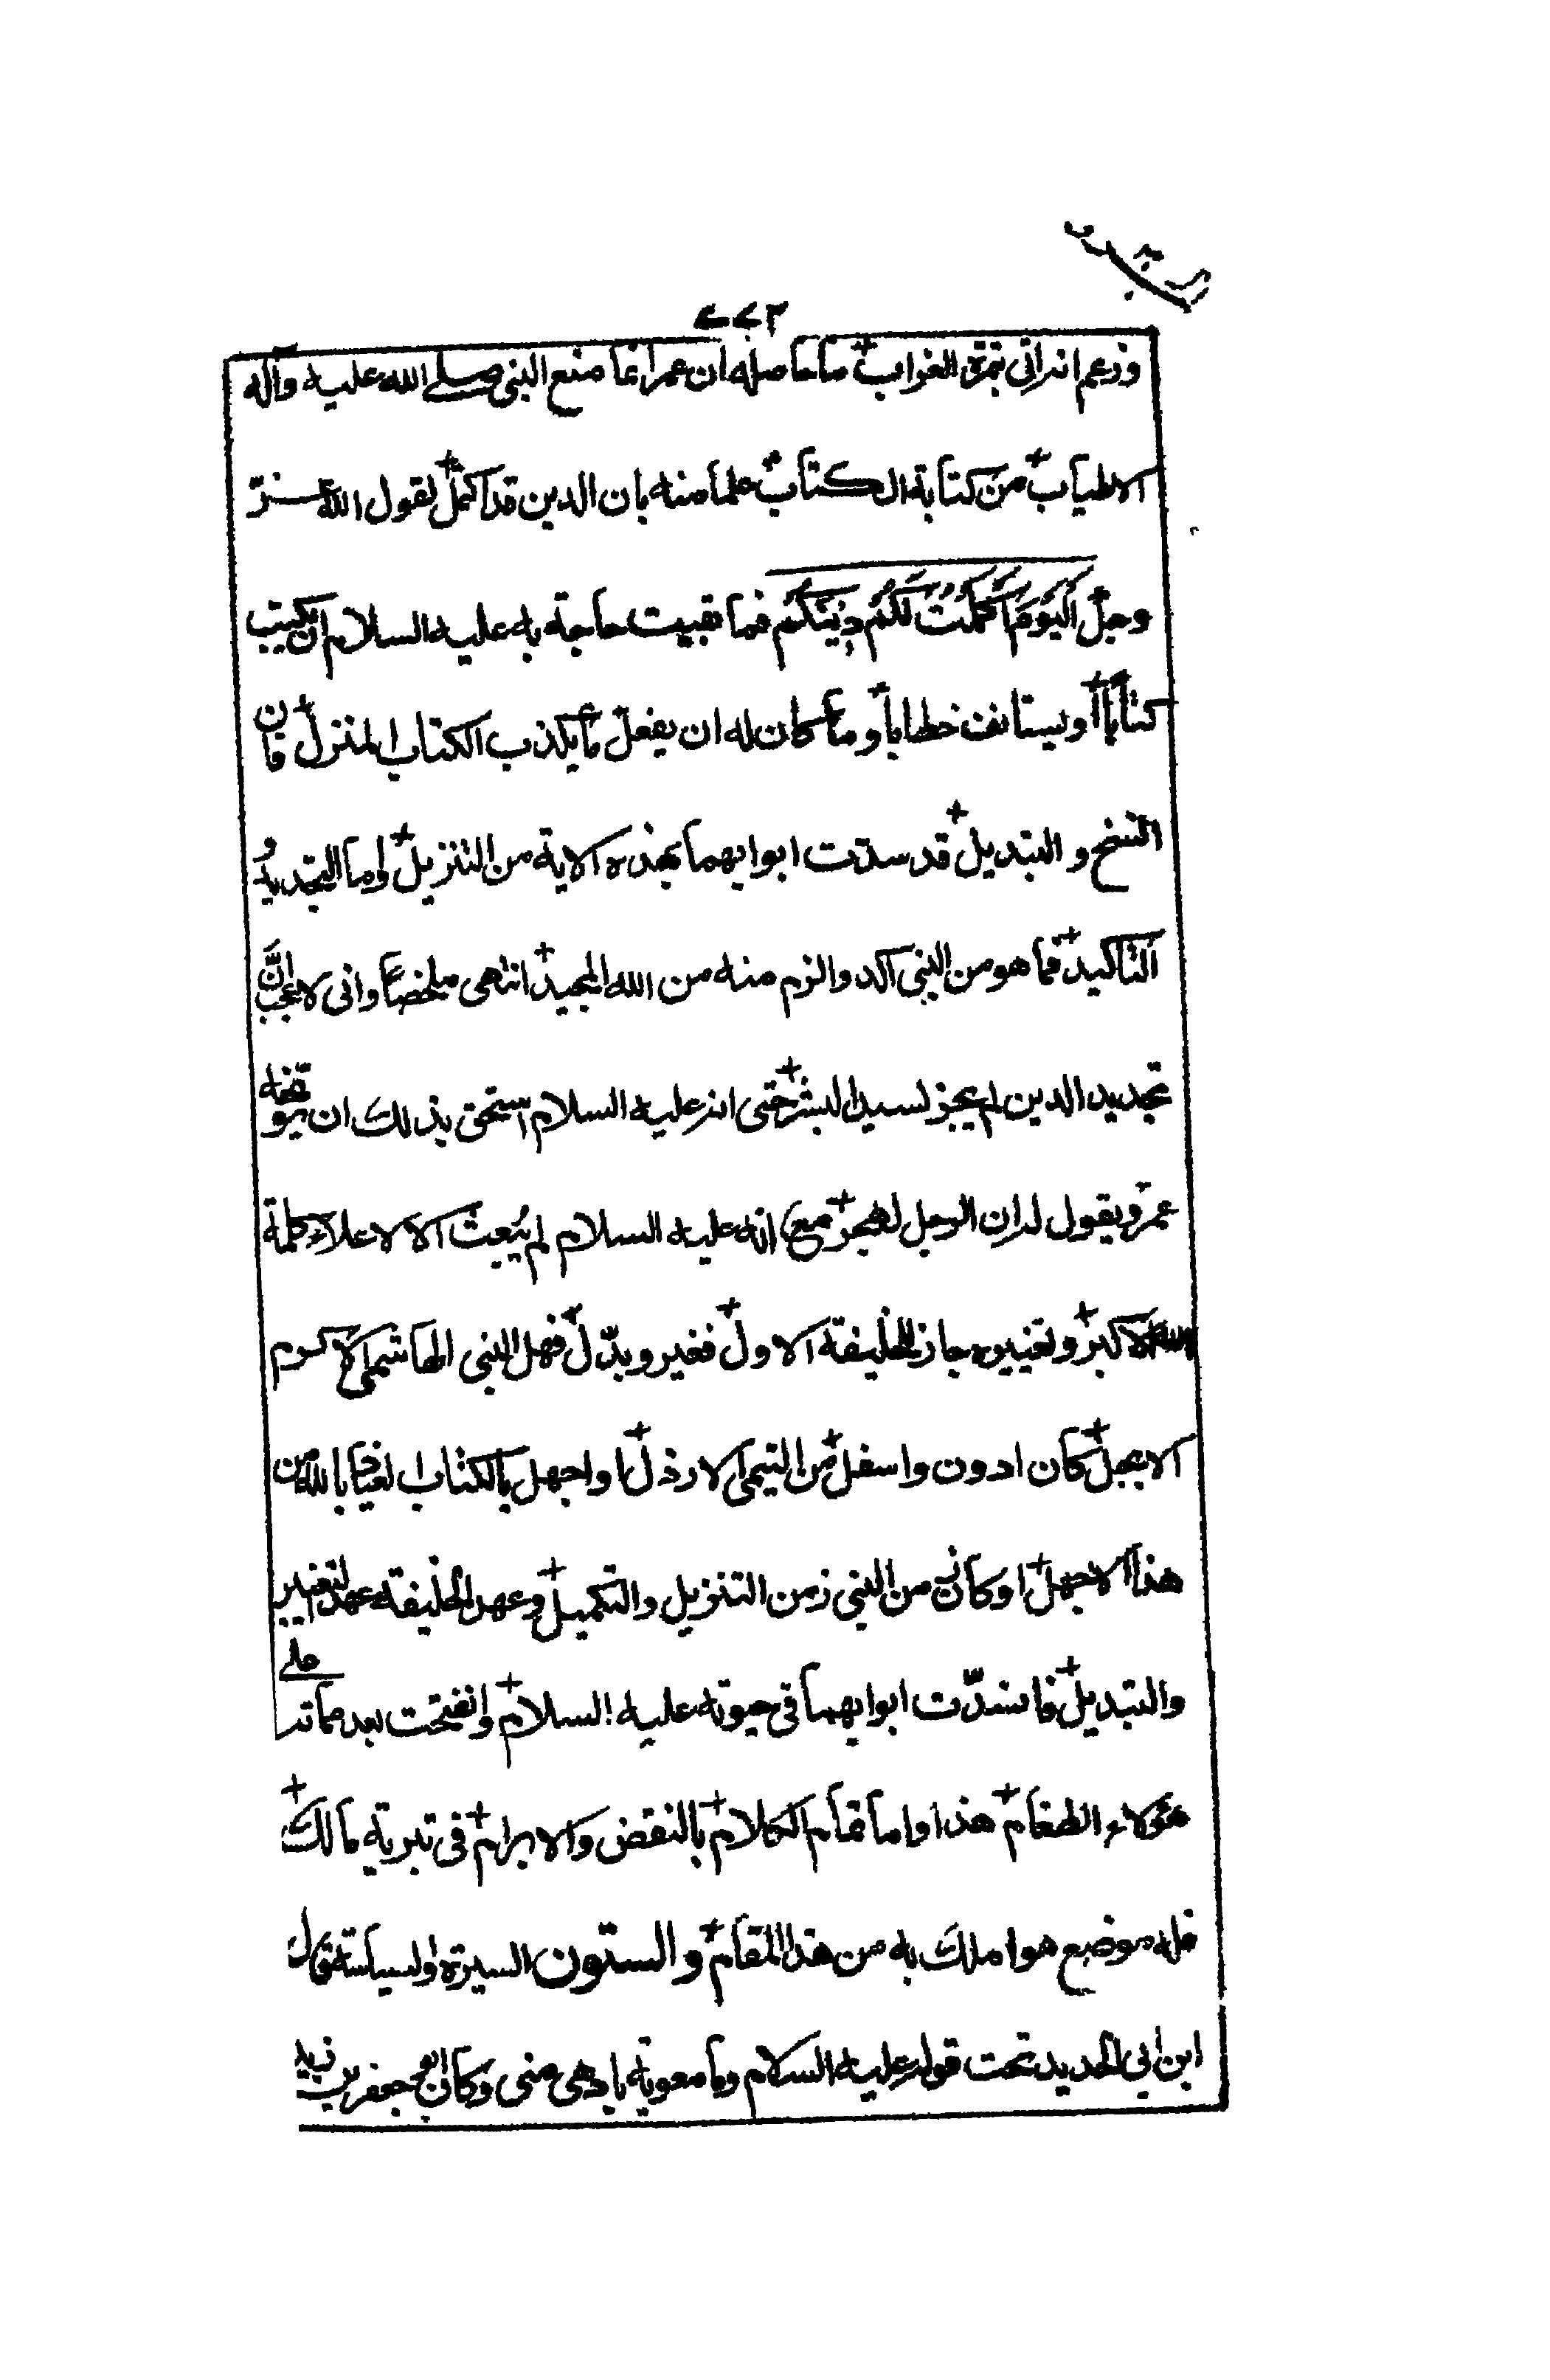 ٢٧٧
وزعم انه اتى بتمرة الغراب ما حاصله ان عمر انما منع النبى صلے الله عليه وآله
الاطياب من كتابة الكتاب علما منه بان الدين قد اكمل لقول الله عزّ
وجلّ اَلْيَوْمَ اَكْمَلْتُ لَكُمْ دِيْنَكُمْ فما بقيت حاجة به عليه السلام ان يكتب
كتابا او يستانف خطابا وما كان له ان يفعل ما يكذب الكتاب المنزل فان
النسخ و التبديل قد سدّت ابوابهما بهذه الاية من التنزيل واما التجديد و
التاكيد فما هو من النبى آكد والزم منه من الله المجيد انتهى ملخصا وانى لاعجب انّ
تجديد الدين لم يجز لسيد البشر حتى انه عليه السلام استحق بذلك ان يوقفه
عمر ويقول له ان الرجل ليهجر مع انه عليه السلام لم يُبعث الا لاعلاء كلمة
الله الاكبر وتغييره جاز للخليفة الاول فغير وبدّل فهل النبى الهاشمى الاكرم
الابجل كان ادون واسفل من التيمى الارذل او اجهل بالكتاب العياذ بالله من
هذا الاجهل او كان زمن النبى زمن التنزيل والتكميل وعهد الخليفة عهد التغيير
والتبديل فانسدّت ابوابهما فى حيوته عليه السلام وانفتحت بعد مماته على
هؤلاء الطغام هذا واما تمام الكلام بالنقض والابرام فى تبرية مالك
فله موضع هو املك به من هذا المقام والستون السيرة والسياسة قال
ابن ابى الحديد تحت قوله عليه السلام وما معوية بادهى منى وكان ابو جعفر بن زيد